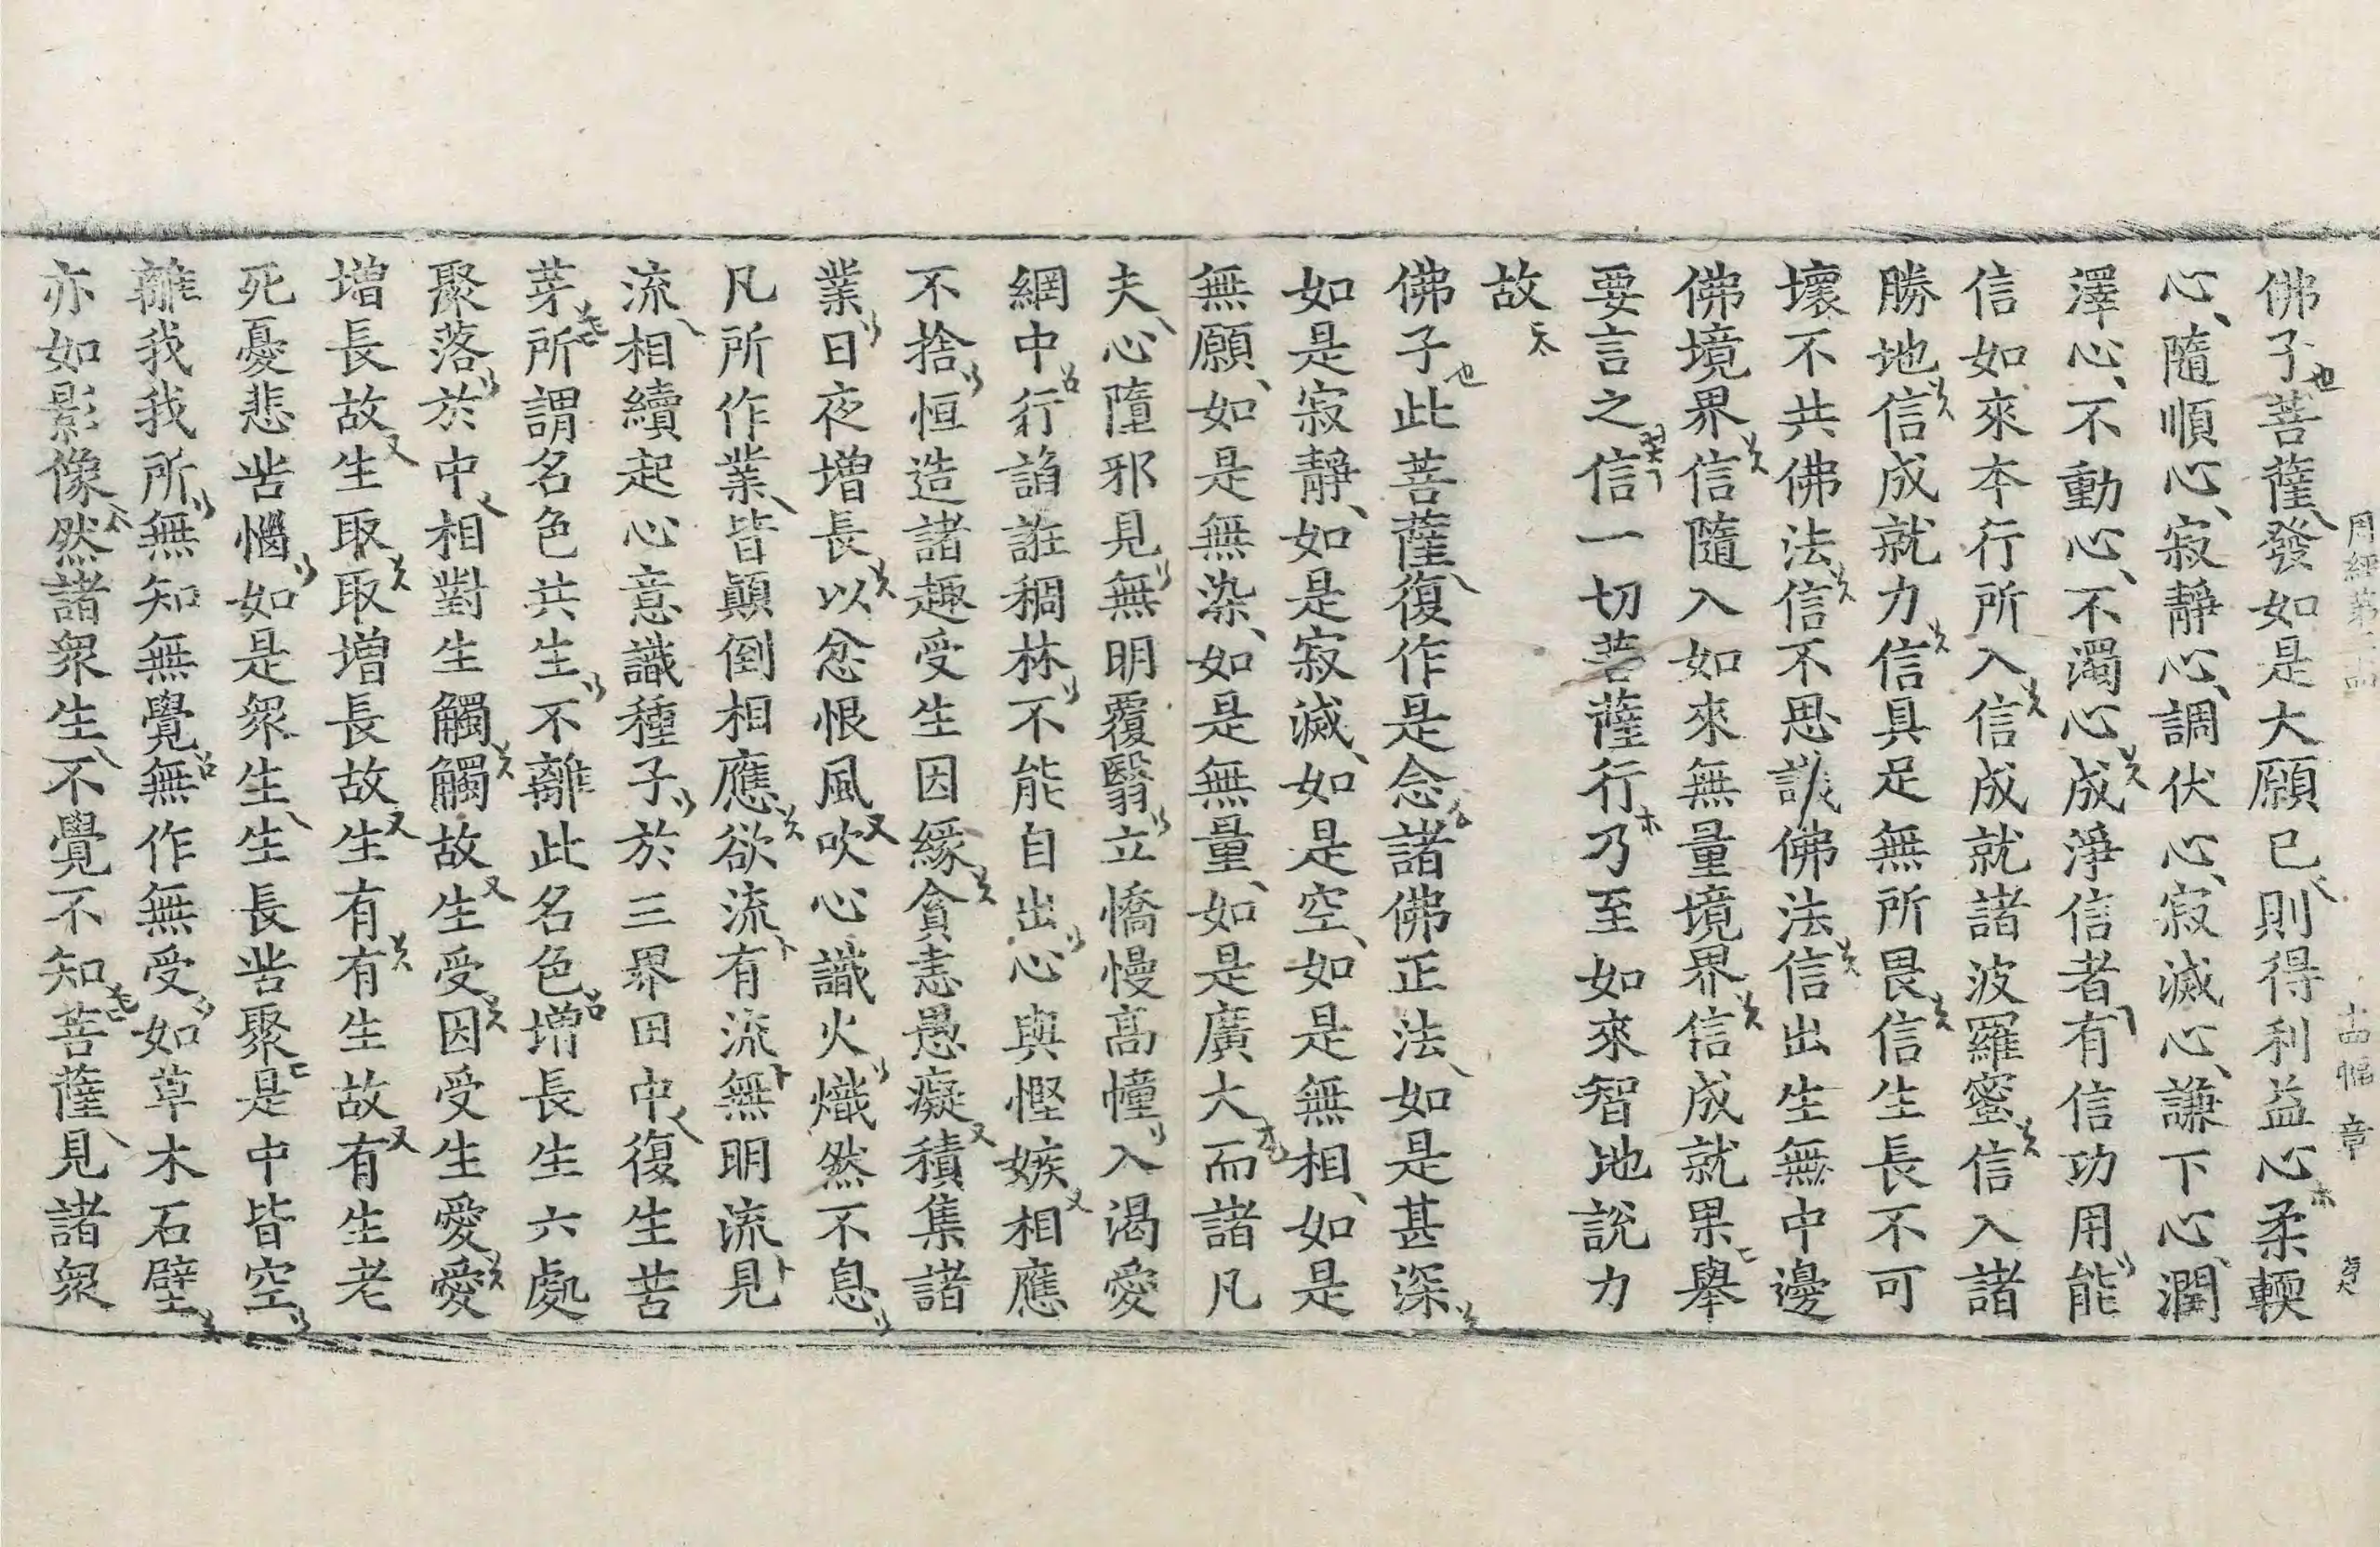 佛子菩薩發如是大願已則得利益心柔輭
心隨順心寂靜心調伏心寂滅心謙下心潤
澤心不動心不濁心成淨信者有信功用能
信如來本行所入信成就諸波羅蜜信入諸
勝地信成就力信具足無所畏信生長不可
壞不共佛法信不思議佛法信出生無中邊
佛境界信隨入如來無量境界信成就果舉
要言之信一切菩薩行乃至如來智地說力
故
佛子此菩薩復作是念諸佛正法如是甚深
如是寂靜如是寂滅如是空如是無相如是
無願如是無染如是無量如是廣大而諸凡
夫心墮邪見無明覆翳立憍慢高幢入渴愛
網中行諂誑稠林不能自出心與慳嫉相應
不捨恒造諸趣受生因緣貪恚愚癡積集諸
業日夜增長以忿恨風吹心識火熾然不息
凡所作業皆顚倒相應欲流有流無明流見
流相續起心意識種子於三界田中復生苦
芽所謂名色共生不離此名色增長生六處
聚落於中相對生觸觸故生受因受生愛愛
增長故生取取增長故生有有生故有生老
死憂悲苦惱如是衆生生長苦聚是中皆空
離我我所無知無覺無作無受如草木石壁
亦如影像然諸衆生不覺不知菩薩見諸衆